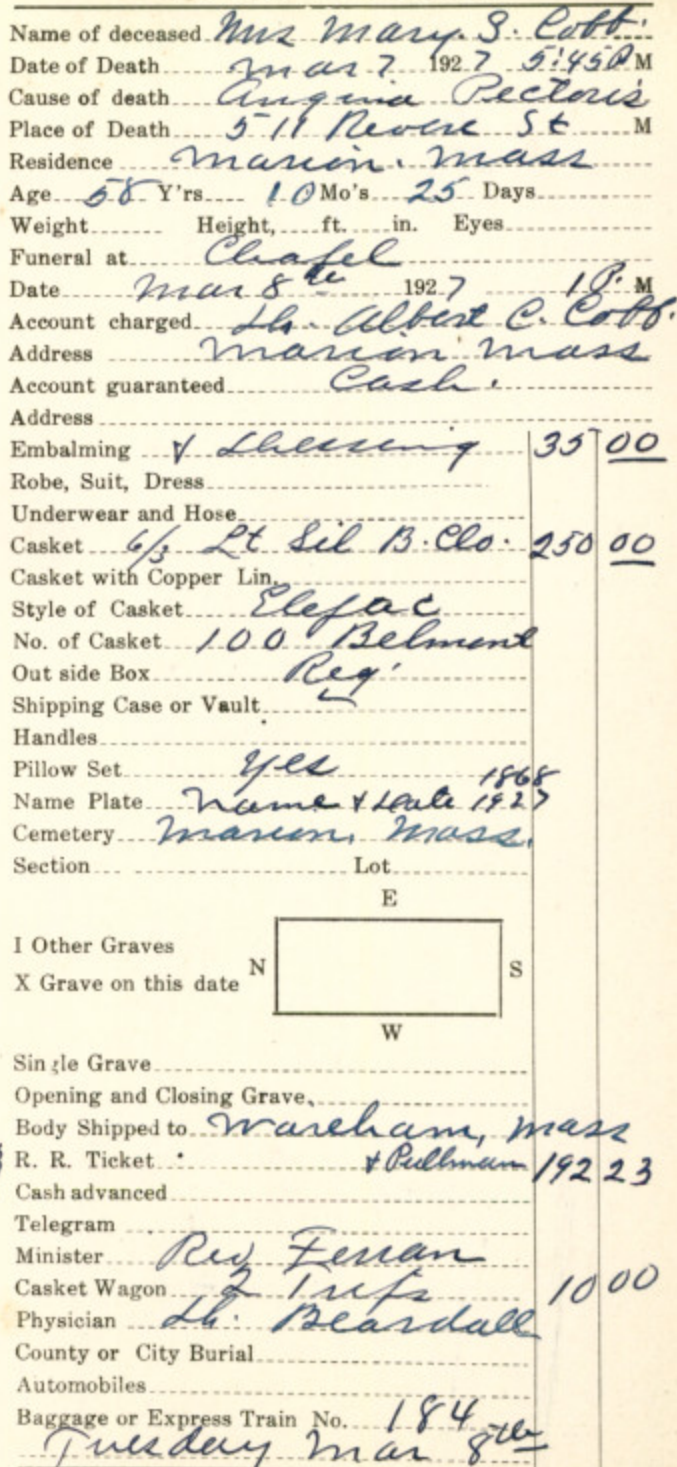 Name of deceased Mrs Mary. S. Cobb.
Date of Death Mar 7 1927 5:45 P M
Cause of death Angina Pectoris
Place of Death 511 Revere St M
Residence Marion. Mass
Age 58 Y'rs 10 Mo's 25 Days
Weight Height, ft. in. Eyes
Funeral at Chapel
Date Mar 8th 1927 1 P. M
Account charged Dr. Albert C. Cobb.
Address Marion Mass
Account guaranteed Cash.
Address
Embalming & Dressing 35 00
Robe, Suit, Dress
Underwear and Hose
Casket 6/3 Lt Sil B. Clo. 250 00
Casket with Copper Lin.
Style of Casket
No. of Casket 100 Belmont
Out side Box Reg.
Shipping Case or Vault
Handles
Pillow Set Yes 1868
Name Plate Name & Date 1927
Cemetery Marion, Mass.
Section Lot
E
I Other Graves
N S
X Grave on this date
W
Single Grave
Opening and Closing Grave,
Body Shipped to Wareham, Mass
R. R. Ticket & Pullman 192 23
Cash advanced
Telegram
Minister Rev
Casket Wagon 2 Trips 10 00
Physician Dr. Beardall
County or City Burial
Automobiles
Baggage or Express Train No. 184
Tuesday Mar 8th